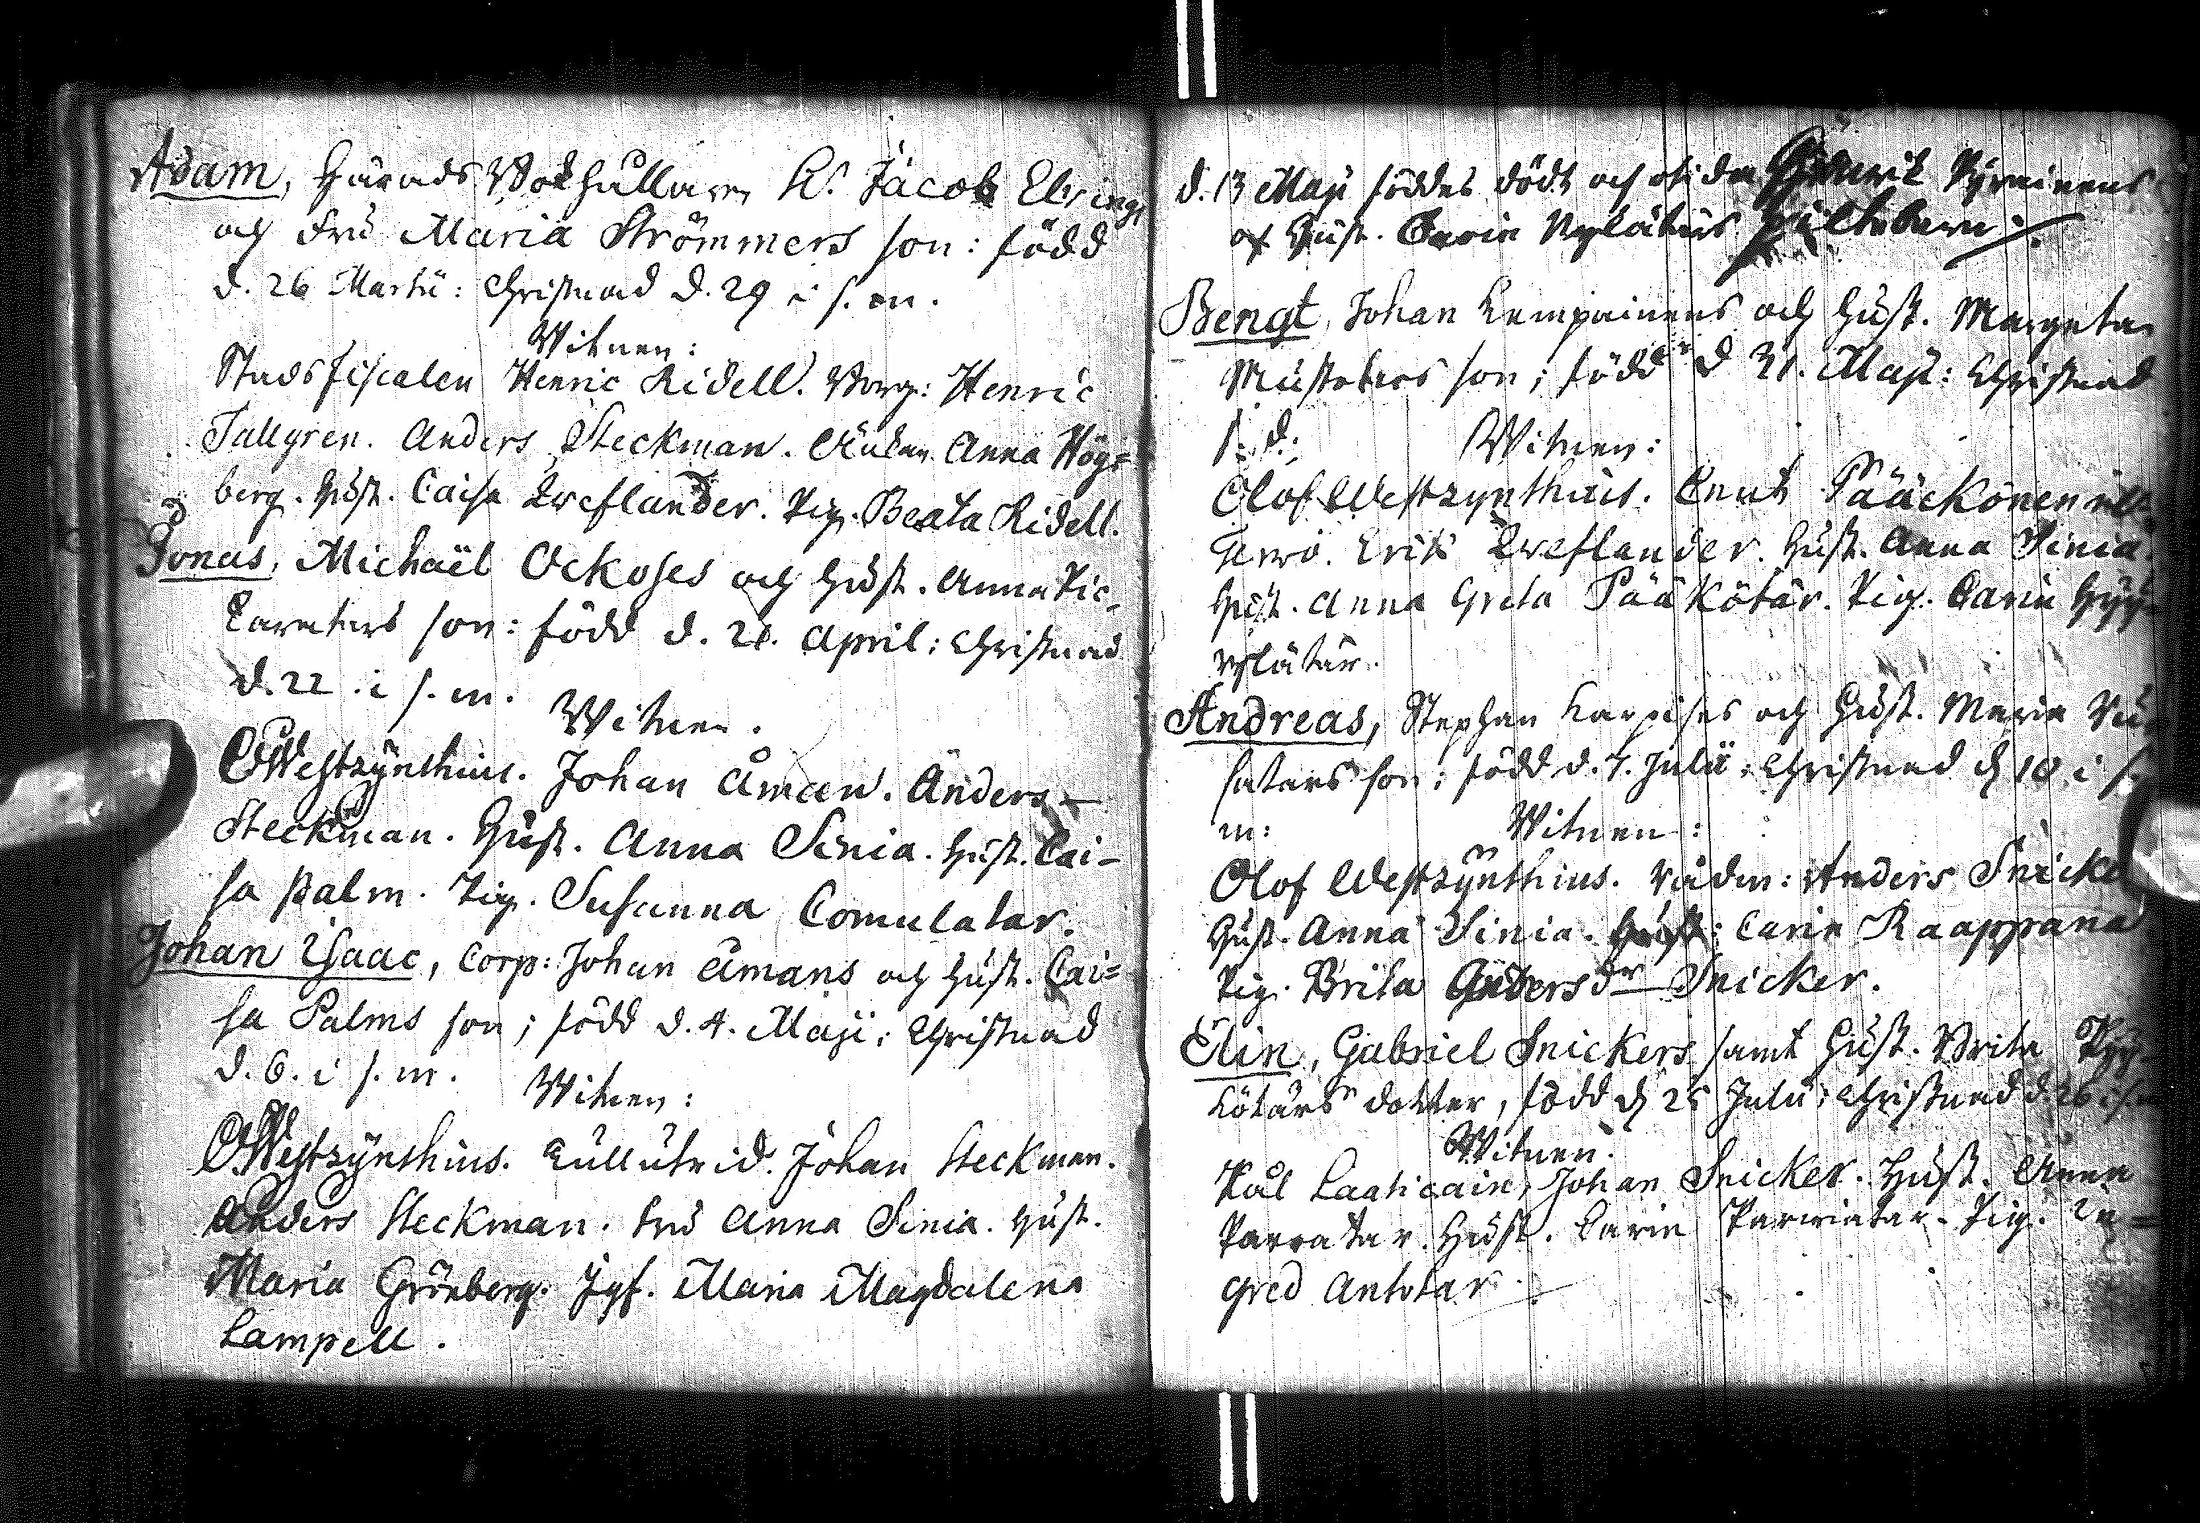 Adam, Härads Bokhållaren H. Jacob Elvings
och Fru Maria Strömmers son: född
d. 26 Martii: Christnad d. 29 i s. m.
Witnen:
Stadsfiscalen Henric Ridell. Borg: Henric
Tallgren. Anders Steckman. Änkan Anna Hög=
berg. Hust. Caisa Qveflander. Pig. Beata Ridell.
Jonas, Michaël Ockoses och Hust. Anna Pic=
karatars son: född d. 21. April: Christnad
d. 22 i s. m.
Witnen.
OWestzÿnthius. Johan Åman. Anders
Steckman. Hust. Anna Sinia. Hust. Cai-
sa Palm. Pig. Susanna Comulatar.
Johan Isaac, Corp: Johan Åmans och Hust. Cai=
sa Palms son; född d. 4. Maji; Christnad
d. 6. i s. m.
Witnen:
OWestzÿnthius. Johan Steckman.
Anders Steckman. Fru Anna Sinia. Hust.
Maria Grönberg. Jgf. Maria Magdalena
Lampell.
d. 13 Maji föddes dödt och Henrik Pyrainens
och Hust. Carin
Bengt, Johan Kempainens och Hust. Margeta
Mustatars son; född d 21. Maji: Christnad
s. d. Witnen:
Olof Westzynthius. Cnut Pääckönen
Erik Qveflander. Hust. Anna Sinia.
Hust. Anna Greta Pääkötär. Pig. Carin Hyy=
rylätär.
Andreas, Stephan Karpises och Hust. Maria
satars son; född d. 7. Julii: Christnad d 10 i s.
m: Witnen:
Olof Westzÿnthius. Rådm: Anders Snicker
Hust. Anna Sinia. Hust: Carin Raappana
Pig. Brita Andersdr Snicker.
Elin, Gabriel Snickers samt Hust. Brita Pyy=
kötärs dotter, född d 25 Julii; Christnad d. 26 i s. m
Witnen.
Pål Laaticain, Johan Snicker. Hust. Anna
Parratar. Hust. Carin Parviatar. Pig. In=
gred Antotar.